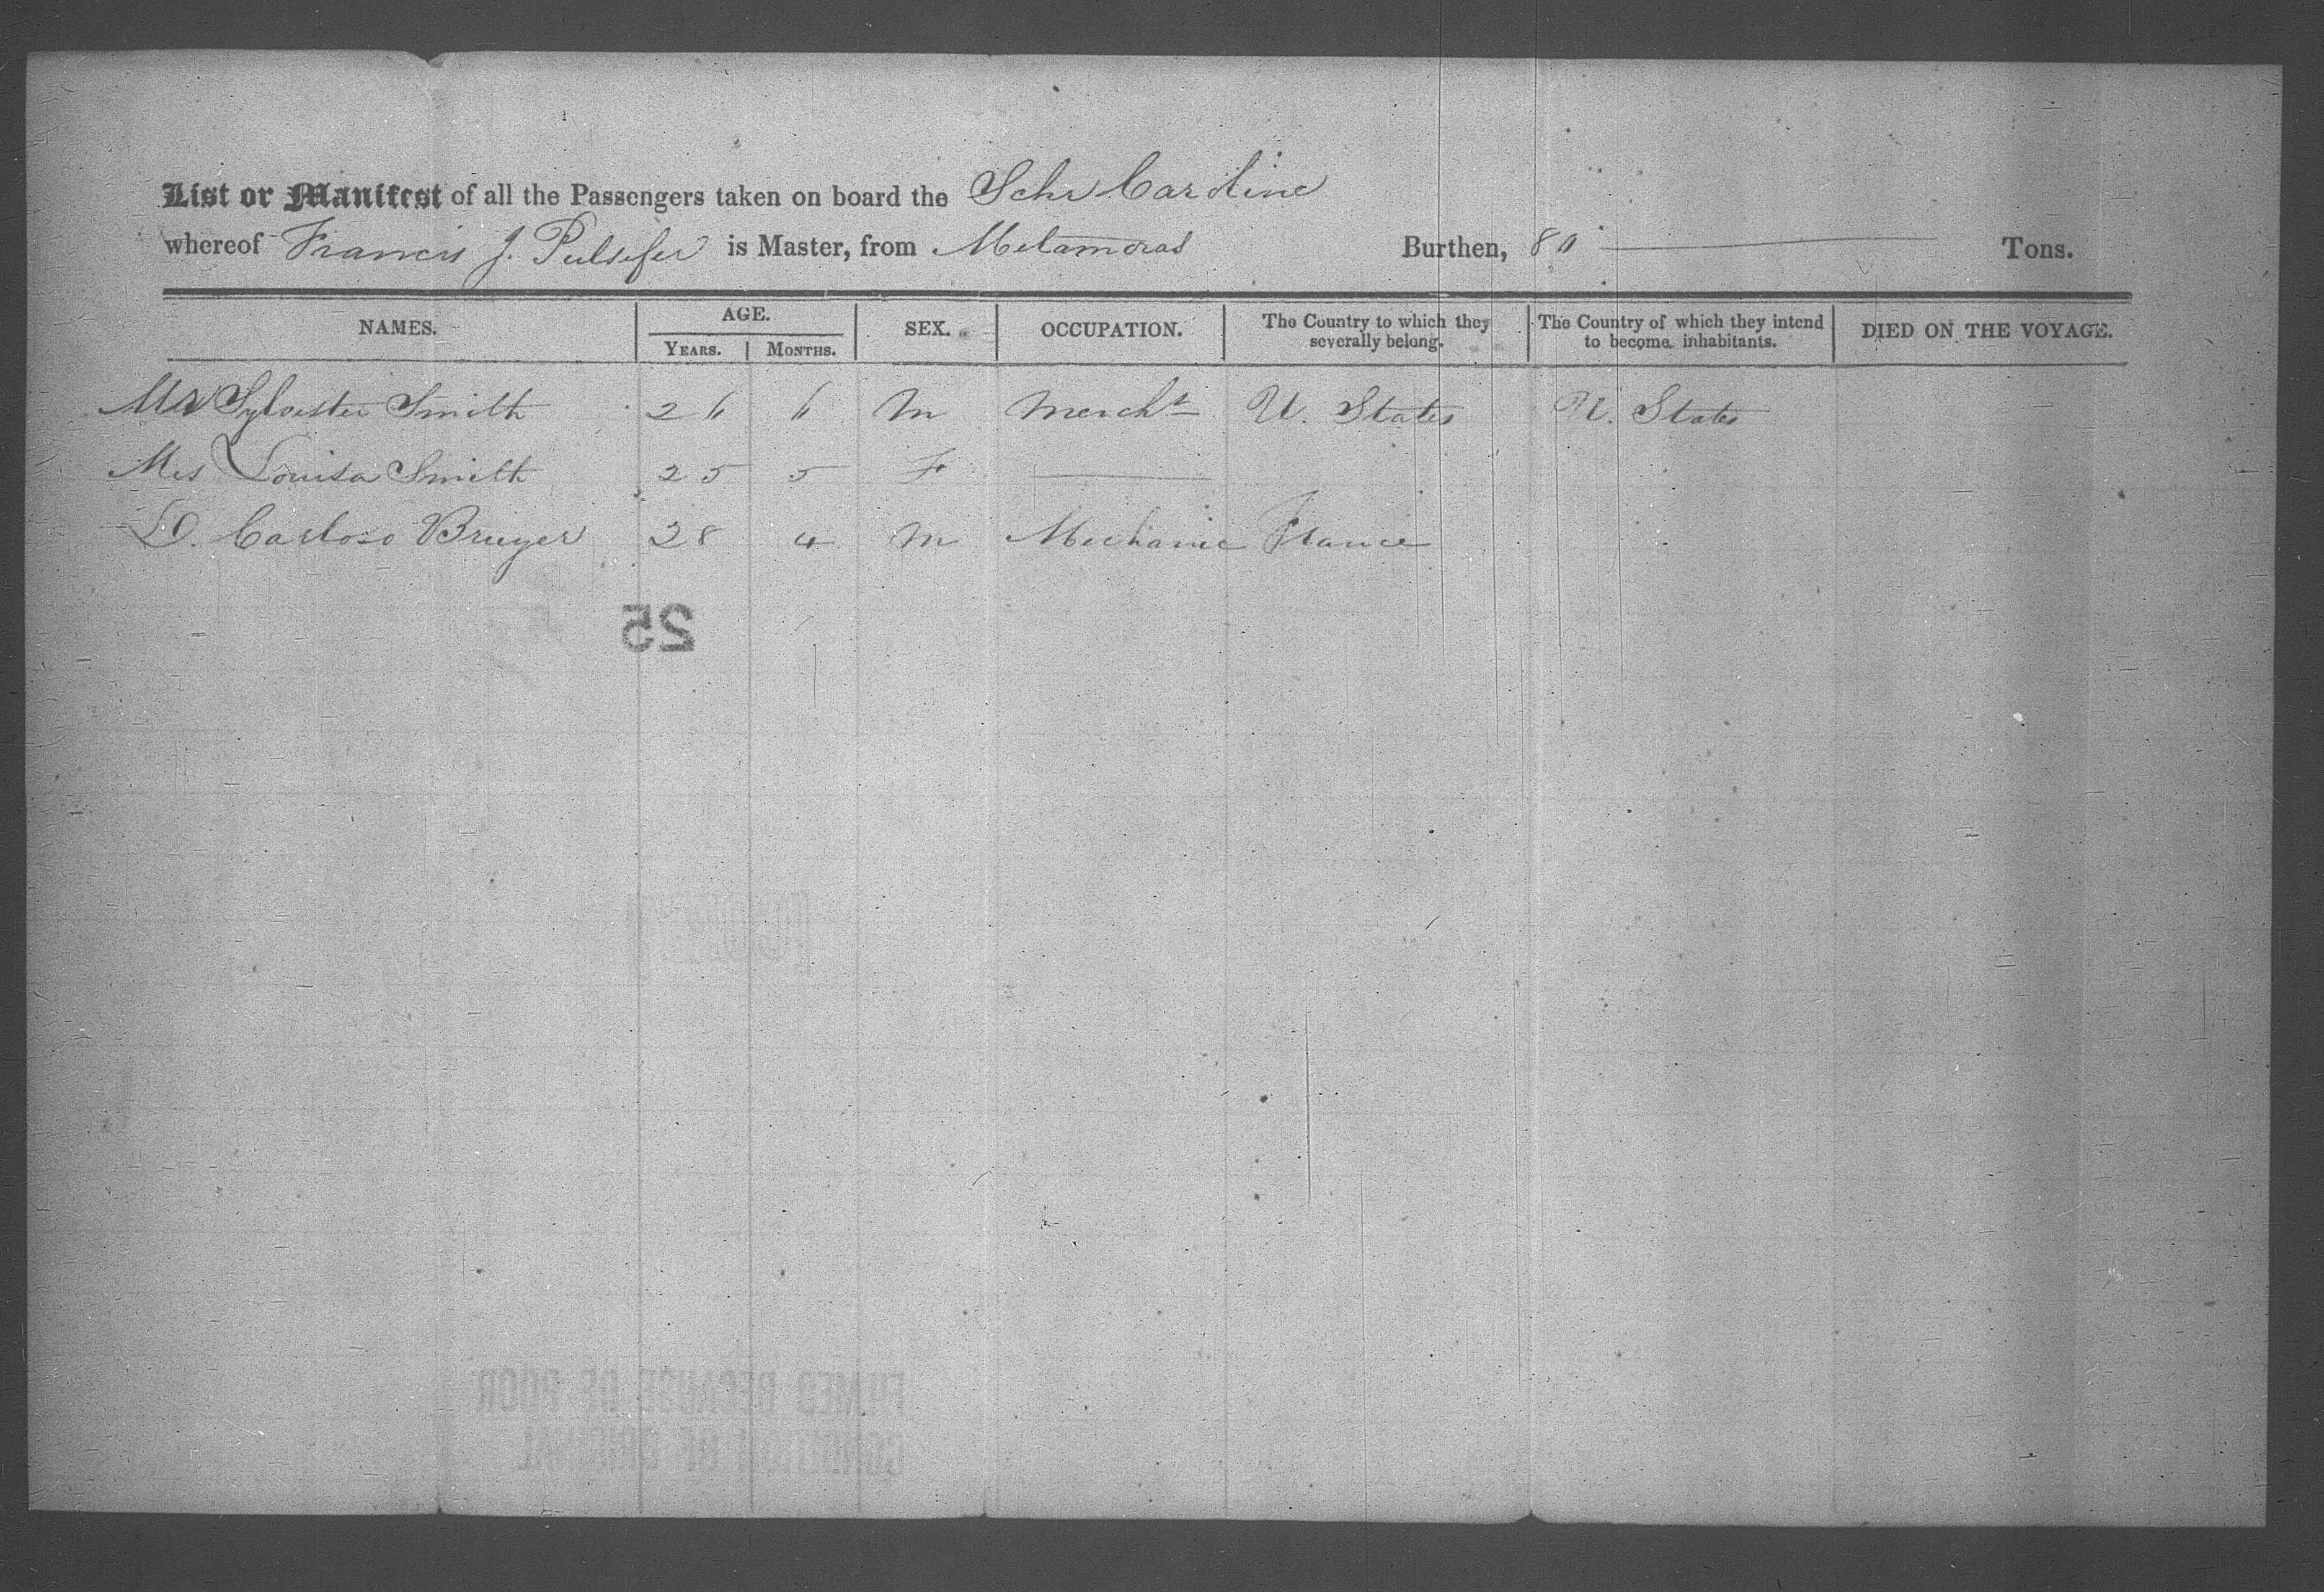 List or Manifest of all the Passengers taken on board the Schr Caroline
whereof Francis J. Pulsifer is Master, from Metamoras Burthen, 80 Tons.
NAMES. AGE. YEARS. MONTHS. SEX. OCCUPATION. The Country to which they severally belong. The Country of which they intend to become inhabitants. DIED ON THE VOYAGE.
Mr Sylvester Smith 26 6 M Mercht U. States U. States
Mrs Louisa Smith 25 5 F
D. Cardoso Bruyer 28 4 M Mechanic France
25
FILMED BECAUSE OF POOR
CONDITION OF ORIGINAL